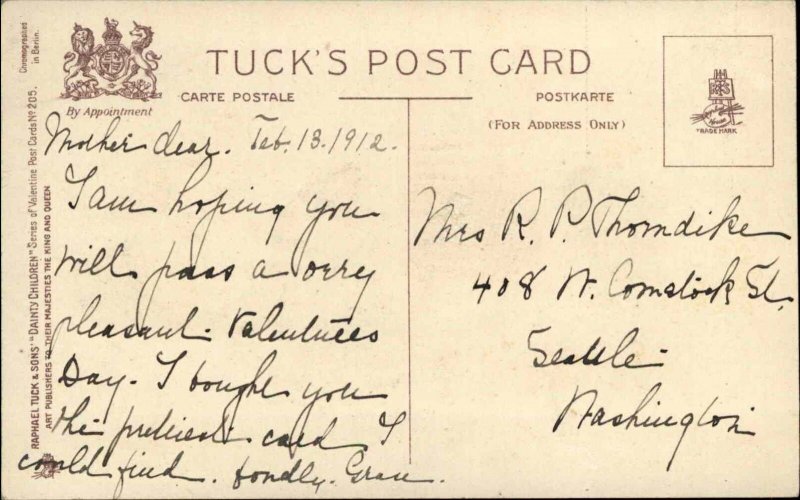 TUCK'S POST CARD
CARTE POSTALE
POSTKARTE
(FOR ADDRESS ONLY)
By Appointment
Chromographed
in Berlin.
RAPHAEL TUCK & SONS' "DAINTY CHILDREN" Series of Valentine Post Cards No 205.
ART PUBLISHERS TO THEIR MAJESTIES THE KING AND QUEEN
TRADE MARK
Mother dear. Feb. 13. 1912.
I am hoping you
will pass a very
pleasant Valentines
Day. I bought you
the prettiest card I
could find. fondly.
Mrs R. P. Thorndike
408 W. Comstock St.
Seattle
Washington